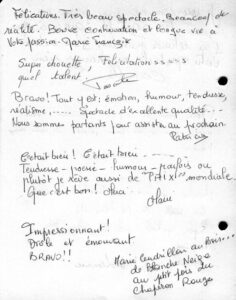 Félicitations. Très beau spectacle. Beaucoup de
réalité. Bonne continuation et longue vie à
votre passion. Marie
Super chouette Félicitations
quel talent
Bravo! Tout y est: émotion, humour, tendresse,
réalisme, .... Spectacle d'excellente qualité...
Nous sommes partants pour assister au prochain
C'était bien! C'était bien ....
Tendresse - poésie - humour - parfois ou
plutôt je rêve aussi de PAIX mondiale
Que c'est bon!
Impressionnant!
Drôle et émouvant
BRAVO!!
Marie
de Blanche Neige
au ptit pois du
Chaperon Rouge